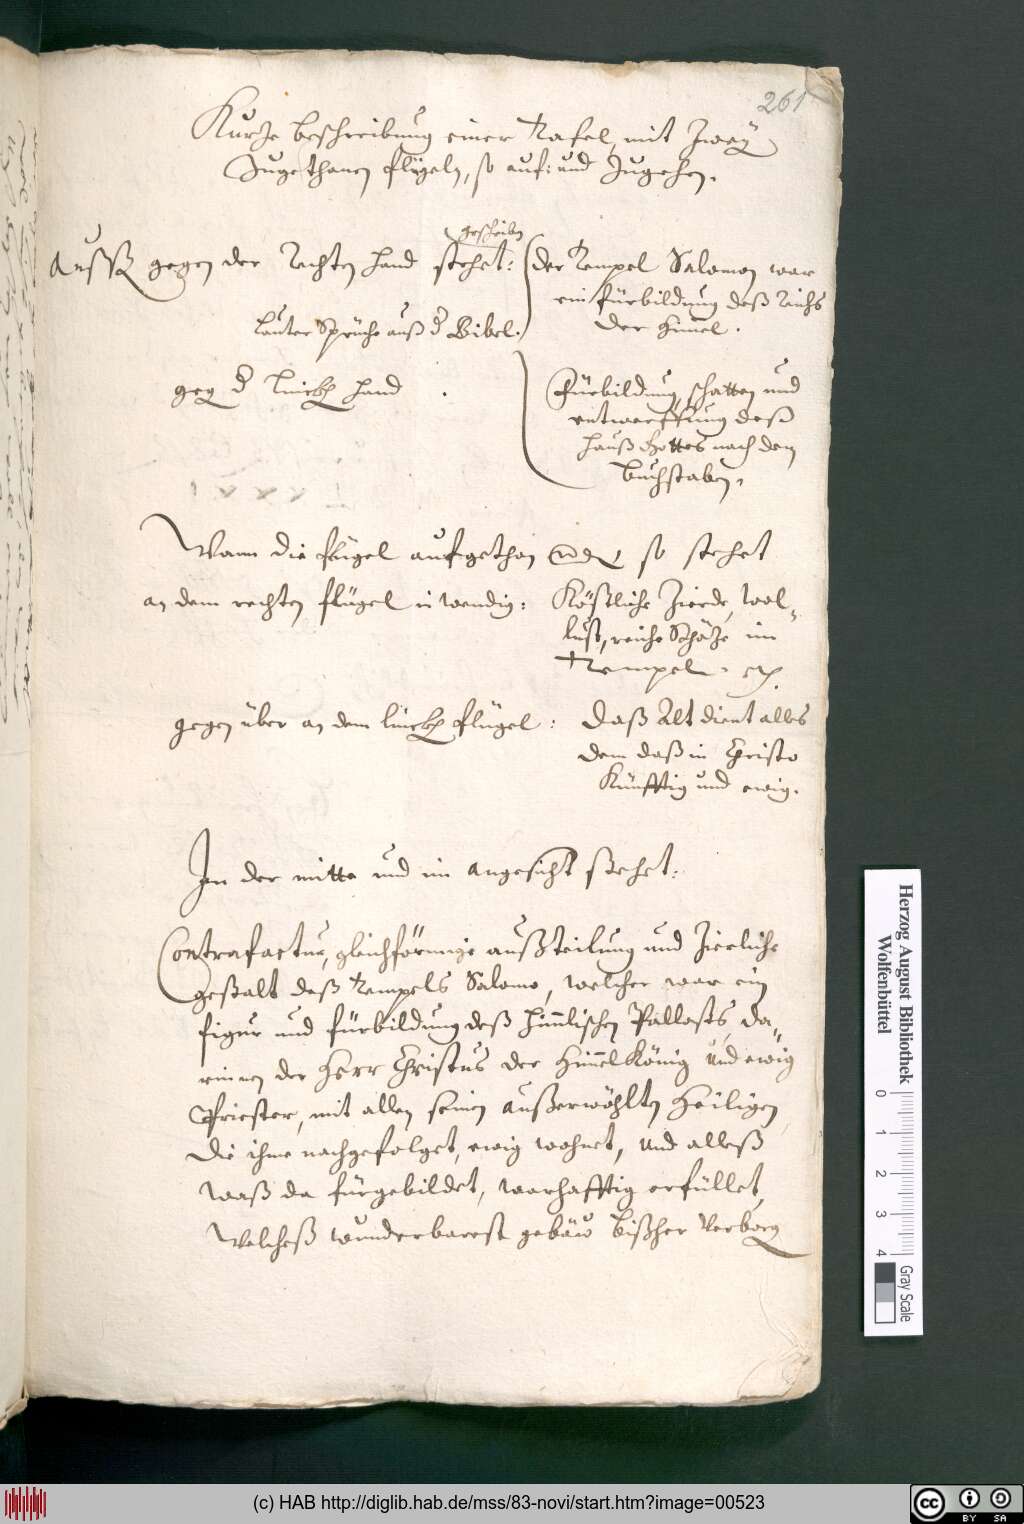 261
Kurze beschreibung einer Tafel, mit zweÿ
Zugethanen flügeln, so auf: und Zugehen.
geschriben
Außß gegen der Rechten hand stehet:
der Tempel Salomon war
ein fürbildung deß Reichs
Lauter Sprüche auß d Bibel.
der Himel.
geg d Lincken hand
Fürbildung, schatten und
entwerffung deß
hauß Gottes nach dem
buchstaben.
Wann die flügel aufgethan so stehet
an dem rechten flügel inwendig:
Köstliche Zierde, wol-
lust, reiche Schäze im
Tempel. etc.
gegen über an dem lincken flügel:
Daß Alt dient alles
dem daß in Christo
Künfftig und ewig.
In der mitte und im angesicht stehet:
Contrafactur, gleichförmige außteilung und Zierliche
gestalt deß Tempels Salomo, welcher war ein
figur und fürbildung deß himlischen Pallasts, da-
rinnen der Herr Christus der HimelKönig und ewig
Priester, mit allen seinen außerwöhlten Heiligen
die ihme nachgefolget, ewig wohnet, und alleß
waß da fürgebildet, warhafftig erfüllet,
Welcheß wunderbarest gebäw bißher verborg
Herzog August Bibliothek
Wolfenbüttel
0 1 2 3 4
Gray Scale
(c) HAB http://diglib.hab.de/mss/83-novi/start.htm?image=00523
cc BY SA